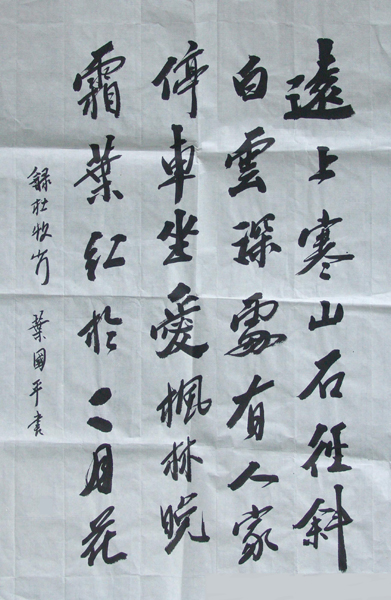 遠上寒山石徑斜
白雲深處有人家
停車坐愛楓林晚
霜葉紅於二月花
錄杜牧山行 葉國平書